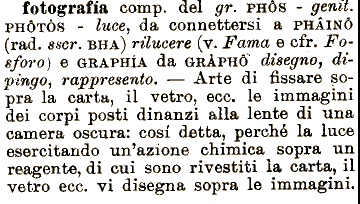 fotografía comp. del gr. PHÔS - genit.
PHÔTÒS - luce, da connettersi a PHÂINÔ
(rad. sscr. BHA) rilucere (v. Fama e cfr. Fo-
sforo) e GRAPHÍA da GRÀPHÔ disegno, di-
pingo, rappresento. — Arte di fissare so-
pra la carta, il vetro, ecc. le immagini
dei corpi posti dinanzi alla lente di una
camera oscura: cosí detta, perché la luce
esercitando un'azione chimica sopra un
reagente, di cui sono rivestiti la carta, il
vetro ecc. vi disegna sopra le immagini.